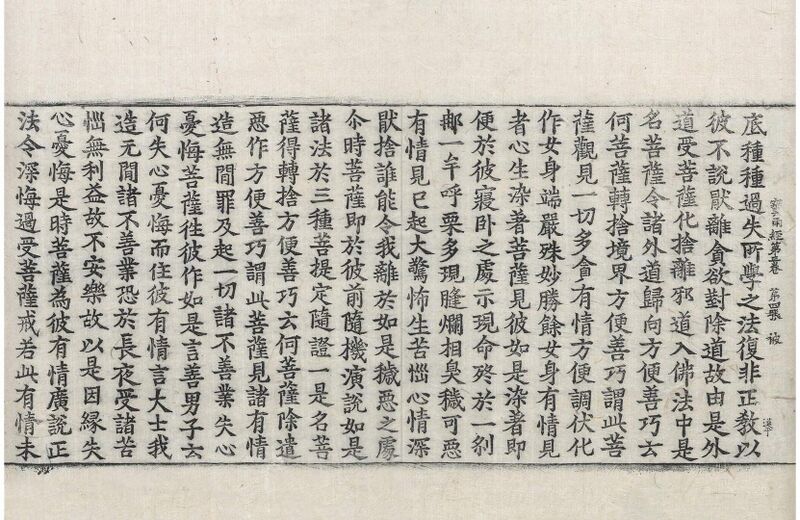 寶雨經第三卷 第四張 被
底種種過失所學之法復非正教以
彼不說猒離貪欲對除道故由是外
道受菩薩化捨離邪道入佛法中是
名菩薩令諸外道歸向方便善巧云
何菩薩轉捨境界方便善巧謂此菩
薩觀見一切多貪有情方便調伏化
作女身端嚴殊妙勝餘女身有情見
者心生染著菩薩見彼如是染著即
便於彼寢卧之處示現命終於一刹
那一牟呼栗多現膖爛相臭穢可惡
有情見已起大驚怖生苦惱心情深
猒捨誰能令我離於如是穢惡之處
尒時菩薩即於彼前隨機演說如是
諸法於三種菩提定隨證一是名菩
薩得轉捨方便善巧云何菩薩除遣
惡作方便善巧謂此菩薩見諸有情
造無間罪及起一切諸不善業失心
憂悔菩薩往彼作如是言善男子云
何失心憂悔而住彼有情言大士我
造无間諸不善業恐於長夜受諸苦
惱無利益故不安樂故以是因緣失
心憂悔是時菩薩為彼有情廣說正
法令深悔過受菩薩戒若此有情未